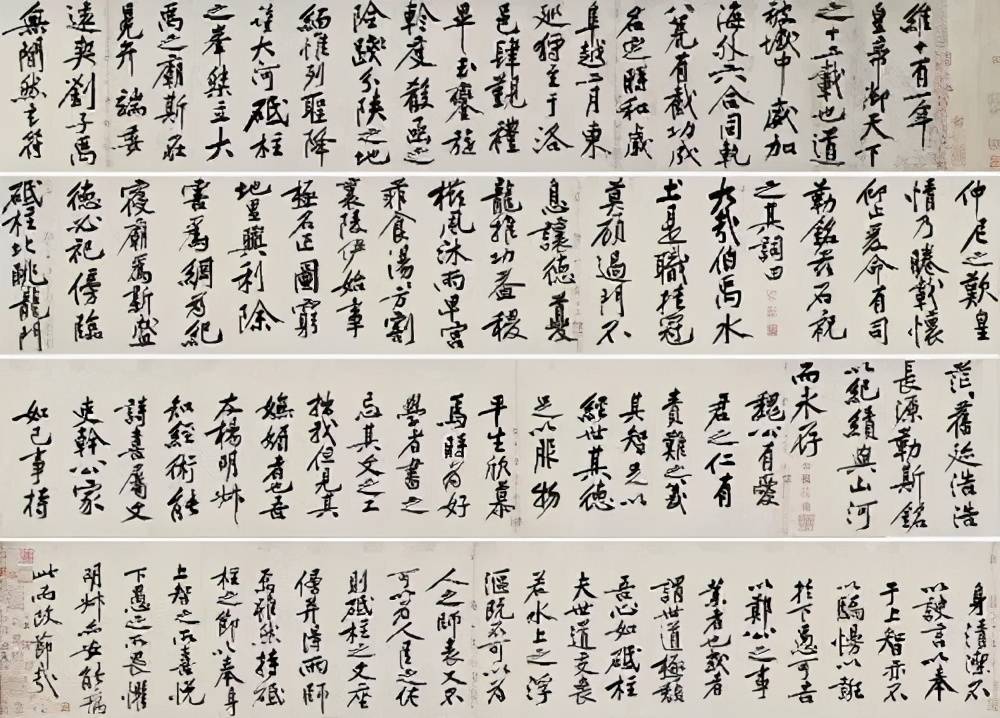 維十有一年
皇帝御天下
之十二載也道
被域中威加
海外六合同軌
八荒有截功成
名遂時和歲
阜越二月東
巡狩至于洛
邑肆覲禮
畢玉鑾旋
軫度殽函之
險踐分陝之地
緬惟列聖降
望大河砥柱
之峯桀立大
禹之廟斯在
冕弁端委
遠契劉子禹
無間然玄符
仲尼之歎皇
情乃睠載懷
仰止爰命有司
勒銘茲石祝
之其詞曰
大哉伯禹水
土是職挂冠
莫顧過門不
息讓德夔
龍推功益稷
櫛風沐雨卑宮
菲食湯湯方割
襄陵伊始事
極名正圖窮
地里興利除
害爲網爲紀
寢廟爲斯盛
德必祀傍臨
砥柱北眺龍門
茫茫舊迹浩浩
長源勒斯銘
以紀績與山河
而永存
魏公有愛
君之仁有
責難之義
其智足以
經世其德
足以服物
平生欣慕
焉時爲好
學者書之
忘其文之工
拙我但見其
嫵媚者也吾
友楊明叔
知經術能
詩喜屬文
吏幹公家
如己事持
身清潔不
以諛言以奉
于上智亦不
以驕慢以誑
於下愚可告
以鄭公之事
業者也或者
謂世道極頹
吾心如砥柱
夫世道交喪
若水上之浮
漚既不可以爲
人之師表又不
可以爲人臣之佐
則砥柱之文座
傍并得兩師
焉雖然持砥
柱之節以奉身
上智之所喜悅
下愚之所畏懼
明叔亦安能病
此而改節哉